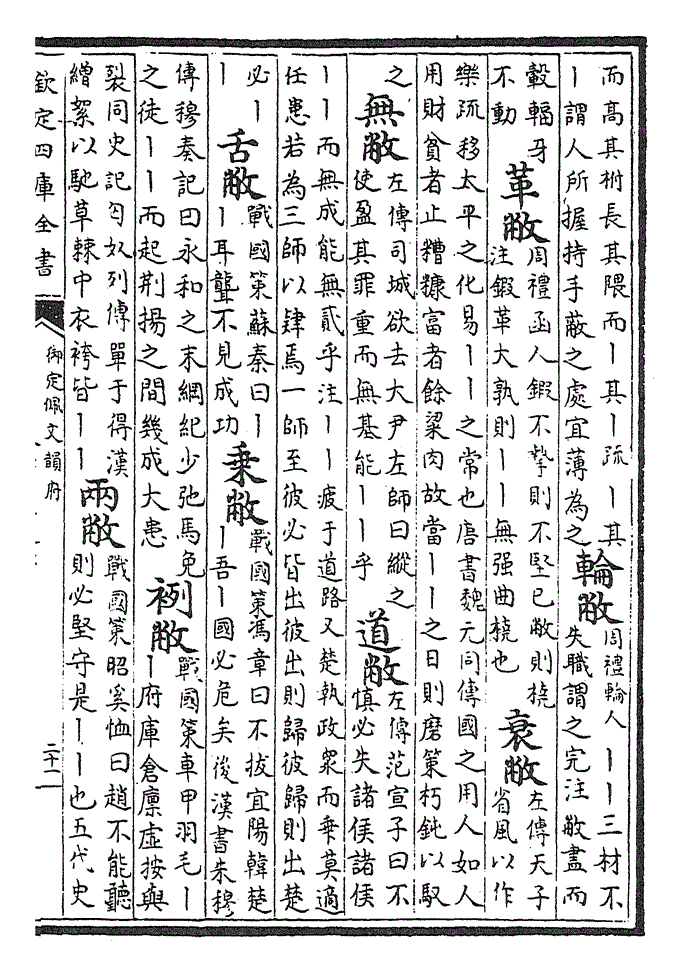 而髙其柎長其隈而丨其丨疏丨其
丨謂人所握持手蔽之處宜薄為之
輪敝
周禮輪人丨丨三材不
失職謂之完注敝盡而
轂輻牙
不動
革敝
周禮函人鍛不摯則不堅已敝則橈
注鍛革大孰則丨丨無强曲橈也
衰敝
左傳天子
省風以作
樂疏移太平之化易丨丨之常也唐書魏元同傳國之用人如人
用財貧者止糟糠富者餘粱肉故當丨丨之日則磨策朽鈍以馭
之
無敝
左傳司城欲去大尹左師曰縱之
使盈其罪重而無基能丨丨乎
道敝
左傳范宣子曰不
慎必失諸侯諸侯
丨丨而無成能無貳乎注丨丨疲于道路又楚執政衆而乗莫適
任患若為三師以肄焉一師至彼必皆出彼出則歸彼歸則出楚
必丨
丨
舌敝
戰國策蘇秦曰丨
丨耳聾不見成功
乗敝
戰國策馮章曰不拔宜陽韓楚
丨吾丨國必危矣後漢書朱穆
傳穆奏記曰永和之末綱紀少弛馬免
之徒丨丨而起荆揚之間幾成大患
敝
戰國策車甲羽毛丨
丨府庫倉廪虛按與
裂同史記匈奴列傳單于得漢
繒絮以馳草棘中衣袴皆丨丨
兩敝
戰國策昭奚恤曰趙不能聽
則必堅守是丨丨也五代史
欽定四庫全書
御定佩文韻府
二十二